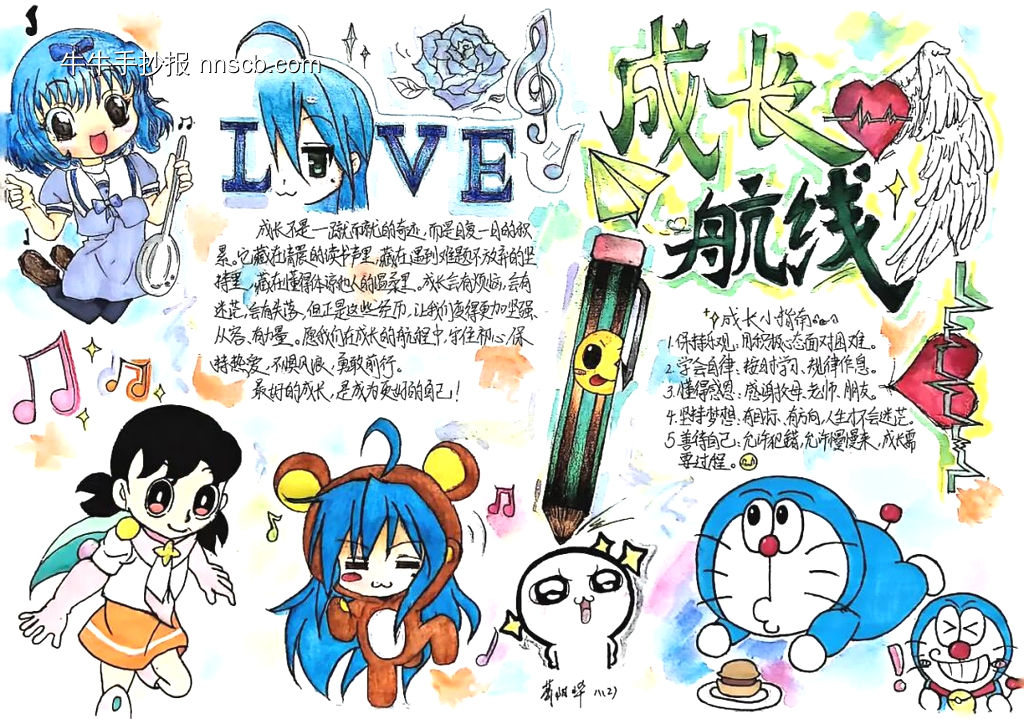 牛牛手抄报 nnscb.com
LOVE
成长不是一蹴而就的奇迹,而是日复一日的积
累。它藏在清晨的读书声里,藏在遇到难题不放弃的坚
持里,藏在懂得体谅他人的温柔里。成长会有烦恼,会有
迷茫,会有失落,但正是这些经历,让我们变得更加坚强、
从容、有力量。愿我们在成长的航程中,守住初心,保
持热爱,不惧风浪,勇敢前行。
最好的成长,是成为更好的自己!
成长
航线
成长小指南
1.保持乐观:用积极心态面对困难。
2.学会自律:按时学习、规律作息。
3.懂得感恩:感谢父母、老师、朋友。
4.坚持梦想:有目标、有方向,人生才不会迷茫。
5.善待自己:允许犯错,允许慢慢来,成长需
要过程。